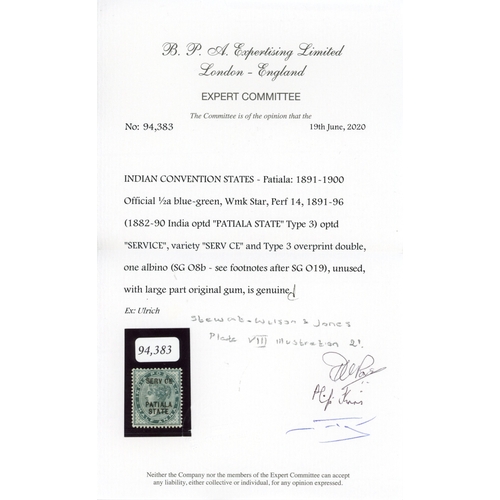 B. P. A. Expertising Limited
London - England
EXPERT COMMITTEE
The Committee is of the opinion that the
No: 94,383
19th June, 2020
INDIAN CONVENTION STATES - Patiala: 1891-1900
Official ½a blue-green, Wmk Star, Perf 14, 1891-96
(1882-90 India optd "PATIALA STATE" Type 3) optd
"SERVICE", variety "SERV CE" and Type 3 overprint double,
one albino (SG O8b - see footnotes after SG O19), unused,
with large part original gum, is genuine
Ex: Ulrich
Stewart-Wilson & Jones
Plate VIII Illustration 21
94,383
SERV CE
PATIALA
STATE
Neither the Company nor the members of the Expert Committee can accept
any liability, either collective or individual, for any opinion expressed.